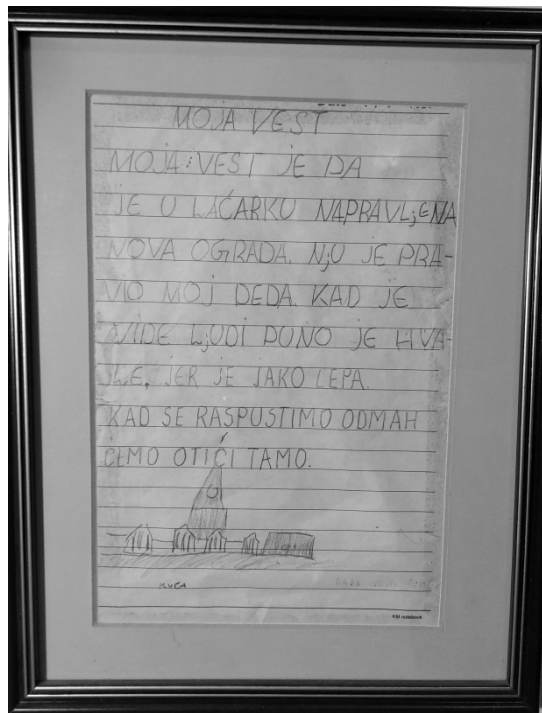 MOJA VEST
MOJA VEST JE DA
JE U LAĆARKU NAPRAVLJENA
NOVA OGRADA. NJU JE PRA-
VIO MOJ DEDA. KAD JE
VIDE LJUDI PUNO JE HVA-
LE. JER JE JAKO LEPA.
KAD SE RASPUSTIMO ODMAH
ĆEMO OTIĆI TAMO.
KUĆA
KM notebook